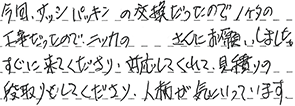 今回、サッシパッキンの交換だったので1ヶ月の
工事だったので、ニッカの　さんにお願いしました。
すぐに来てくださり、対応してくれて、見積りの
段取りもしてくださり、人柄が気にいっています。